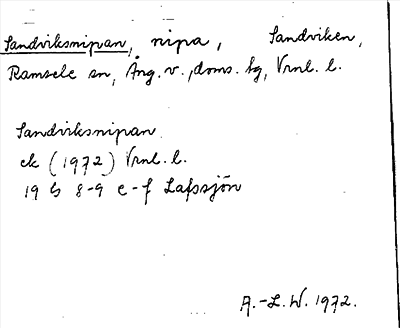 Sandviksnipan, nipa, Sandviken,
Ramsele sn, Ång. v., doms. lg, Vrnl. l.
Sandviksnipan
ek (1972) Vrnl. l.
19 G 8-9 e-f Lafssjön
A.-L. W. 1972.